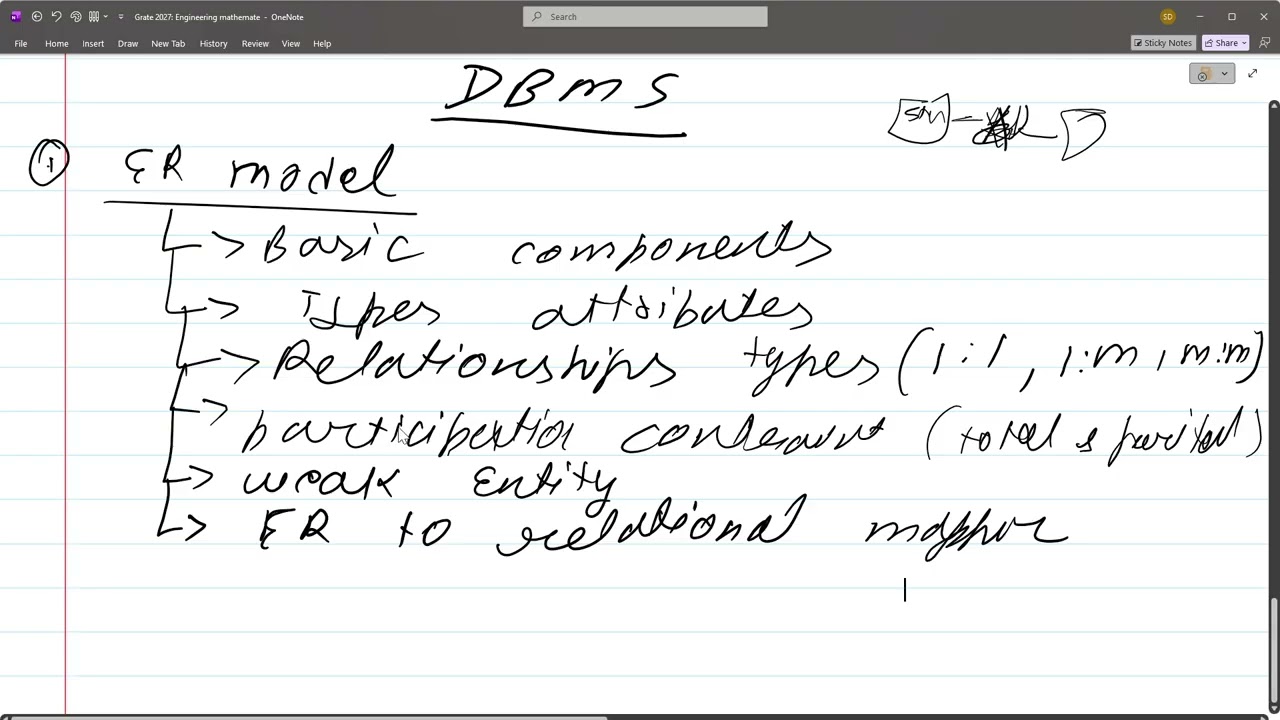 Grate 2027: Engineering mathemate - OneNote
Search
SD
File Home Insert Draw New Tab History Review View Help
Sticky Notes Share
DBMS
① ER model
Basic components
Types attributes
Relationships types (1:1, 1:m, m:m)
participation constraint (total & partial)
weak Entity
ER to relational